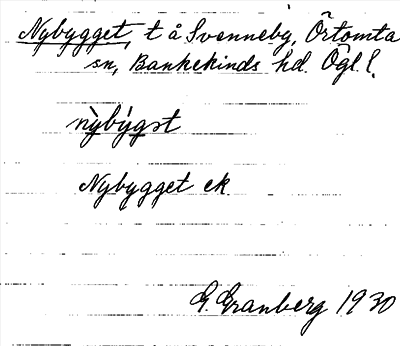 Nybygget, t å Svenneby, Örtomta
sn, Bankekinds hd. Ögl. l.
nỳbýgst
Nybygget ek.
G. Granberg 1930